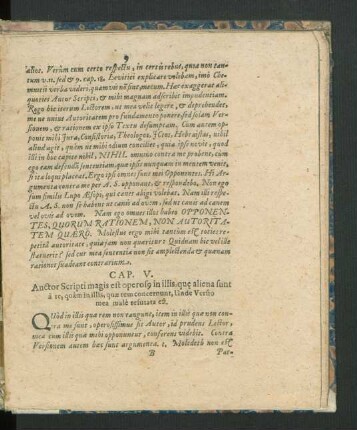 9
alios. Verùm cum certo respectu, in certis rebus, quæ non tan-
tum v. 11. sed & 9. cap. 18. Levitici explicare volebam, imò Che-
mnitii verba videri, quàm vti nõ sint, metum. Hæc exaggerat ali-
quoties Autor Scripti, & mihi magnam adscribit impudentiam.
Rogo hic iterum Lectorem, ut mea velit legere, & deprehendet,
me ne unius Autoritatem pro fundamento ponere, sed solam Ver-
sionem, & rationem ex ipso Textu desumptam. Cum autem op-
ponit mihi Jura, Consistoria, Theologos, JCtos, Hebraistas, nihil
aliud agit, quàm ut mihi odium conciliet, quia ipse novit, quod
illi in hoc capite nihil, NIHIL omnino contra me probent, cùm
ego eam defendã sententiam, quæ ipsis nunquam in mentem venit,
se ita loquí placeat, Ergo ipsi omnes sunt mei Opponentes. Hi Ar-
gumenta contra me per A. S. opponant, & respondebo, Non ego
sum similis Lupo Æsopi, qui canes abigi volebat. Nam illi respe-
ctu A. S. non se habent ut canis ad ovem, sed ut canis ad canem
vel ovis ad ovem. Nam ego omnes illos habeo OPPONEN-
TES, QUORUM RATIONEM, NON AUTORITA-
TEM QUÆRO. Molestus ergo mihi tantùm est, toties re-
petitâ autoritate, quia jam non quæritur: Quidnam hic vel ille
statuerit? sed cur mea sententia non sit amplectenda & quænam
rationes suadeant contrarium.
CAP. V.
Auctor Scripti magis est operosus in illis, quæ aliena sunt
à re, quàm in illis, quæ rem concernunt, Unde Versio
mea malè refutata est.
QUòd in illis quæ rem non tangunt, item in illis quæ non con-
tra me sunt, operosissimus sit Autor, id prudens Lector,
mea cum illis quæ mihi opponuntur, conferens videbit. Contra
Versionem autem hæc sunt argumenta. 1. Molidetã non est
B
Par-